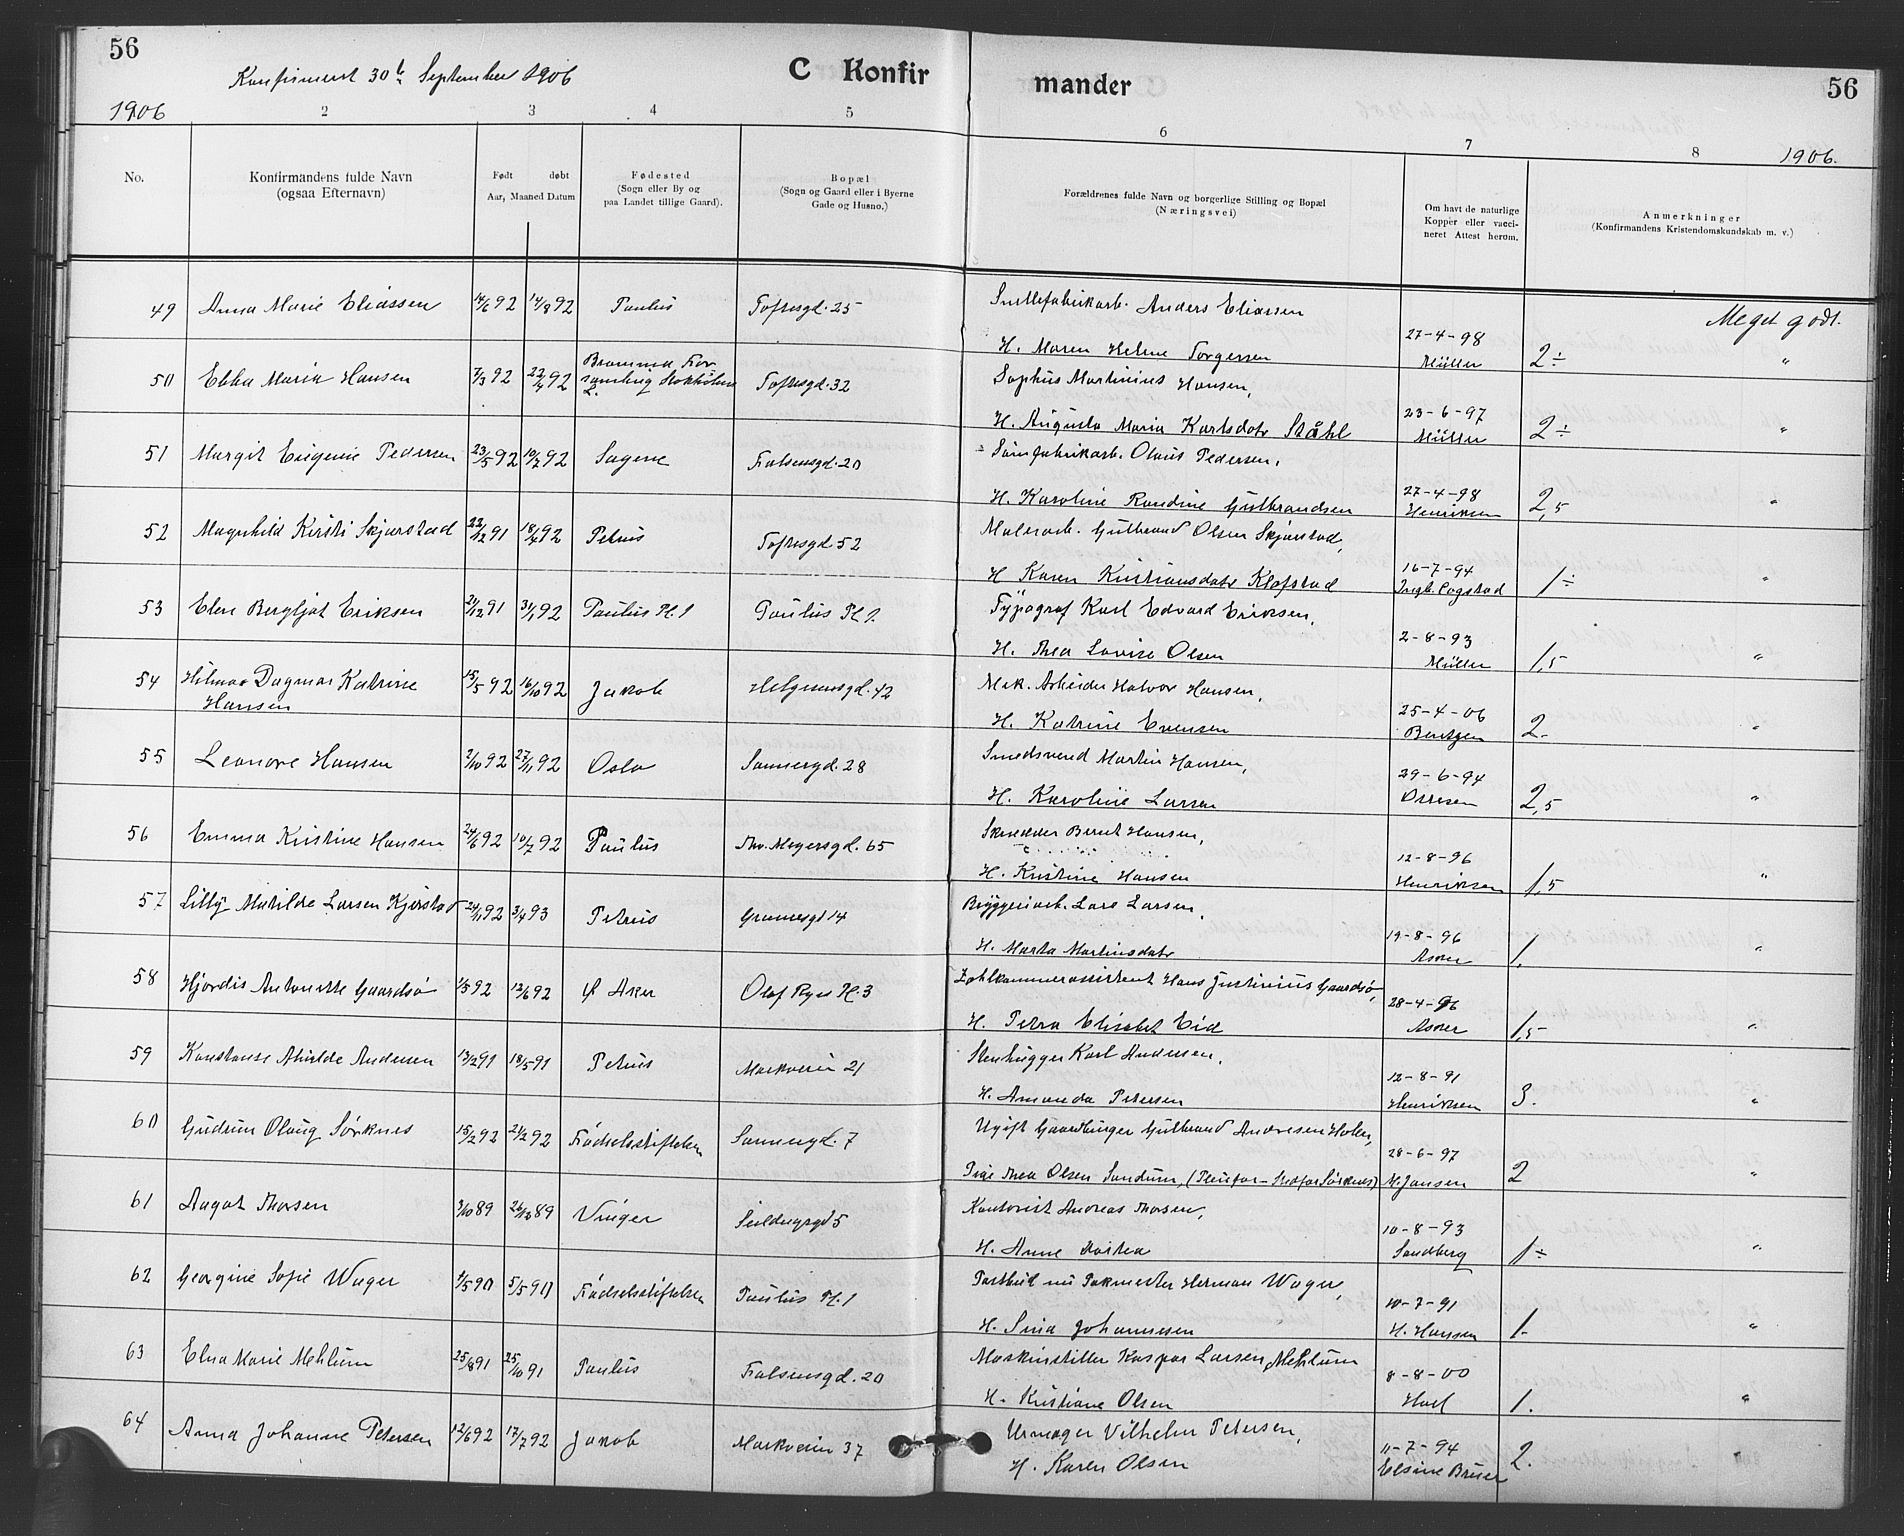 56
Konfirmert 30te September 1906
C Konfir
mander
56
1906
2
3
4
5
6
7
8
1906.
No.
Konfirmandens fulde Navn
(ogsaa Efternavn)
Født døbt
Aar, Maaned Datum
Fødested
(Sogn eller By og
paa Landet tillige Gaard).
Bopæl
(Sogn og Gaard eller i Byerne
Gade og Husno.)
Forældrenes fulde Navn og borgerlige Stilling og Bopæl
(Næringsvei)
Om havt de naturlige
Kopper eller vacci-
neret Attest herom.
Anmerkninger
(Konfirmandens Kristendomskundskab m. v.)
49 Anna Marie Eliassen 14/6 92 14/8 92 Paulus Toftesgd. 25
Anders Eliassen
H. Maren Helene Torgersen
27-4-98
Müller
2÷
Meget godt.
50 Ebba Maria Hansen 7/3 92 22/4 92 Bromma For
samling Stokholms
L.
Toftesgd. 32
Sophus Martinius Hansen,
H. Augusta Maria Karlsdatr Ståhl
23-6-97
Müller
2÷
"
51 Margit Eugenie Pedersen 23/5 92 10/7 92 Sagene Falsensgd. 20
Olaus Pedersen,
H. Karoline Randine Gulbrandsen
27-4-98
Henriksen
2,5
"
52 Magnhild Kirsti Skjørstad 22/12 91 18/4 92 Petrus Toftesgd 52
Malerarb. Gulbrand Olsen Skjørstad,
H Karen Kristiansdatr Klofstad
16-7-94
Ingb. Fogstad
1÷
"
53 Elen Bergljot Eriksen 21/12 91 31/1 92 Paulus Pl. 1 Paulus Pl 1.
Typograf Karl Edvard Eriksen,
H. Thea Lovise Olsen
2-8-93
Müller
1,5
"
54 Hilma Dagmar Katrine
Hansen
15/5 92 16/10 92 Jakob Helgesensgd. 42
Mek. Arbeider Halvor Hansen,
H. Katrine Evensen
25-4-06
Bentzen
2.
"
55 Leonore Hansen 2/10 92 27/11 92 Oslo Sannergd. 28
Smedsvend Martin Hansen,
H. Karoline Larsen
29-6-94
2,5
"
56 Emma Kristine Hansen 24/6 92 10/7 92 Paulus Thv. Meyersgd. 65
Skredder Bernt Hansen,
H. Kristine Hansen
12-8-96
Henriksen
1,5
"
57 Lilly Matilde Larsen Kjerstad 24/11 92 3/4 93 Petrus Grunersgd 14
Bryggeriarb. Lars Larsen,
H. Marta Martinsdatr
19-8-96
Asker
1.
"
58 Hjørdis Antonette Gaardsø 1/5 92 12/6 92 Ø Aker Olaf Ryes Pl. 3
Zahlkammerassistent Hans Justinius Gaardsø,
H. Petra Elisabet Eid
28-4-96
Asker
1,5
"
59 Konstanse Alvilde Andersen 13/2 91 18/5 91 Petrus Markveien 21
Stenhugger Karl Andersen,
H. Amanda Petersen
12-8-91
Henriksen
3.
"
60 Gudrun Olaug Sørknes 15/2 92 21/2 92 Fødselsstiftelsen Sannergd. 7
Ugift Gaardbruger Gulbrand Andresen Holen,
Pige Thea Olsen Sandum, (Pleiefar - Stedfar Sørknes)
28-6-97
M. Jansen
2
"
61 Aagot Thorsen 3/10 89 26/12 89 Vinger Seilduksgd 5
Kontorist Andreas Thorsen,
H. Anne Dortea
10-8-93
Sandberg
1÷
"
62 Georgine Sofie Wager 1/5 90 5/5 90 Fødselsstiftelsen Paulus Pl. 1
Postbud nu Pakmester Herman Wager,
H. Sina Johannesen
10-7-91
H. Hansen
1.
"
63 Elna Marie Mehlum 25/8 91 25/10 91 Paulus Falsensgd. 20
Maskinstiller Kaspar Larsen Mehlum
H. Kristiane Olsen
8-8-00
1.
"
64 Anna Johanne Petersen 12/6 92 17/7 92 Jakob Markveien 37
Urmager Vilhelm Petersen,
H. Karen Olsen
11-7-94
Elsine
2.